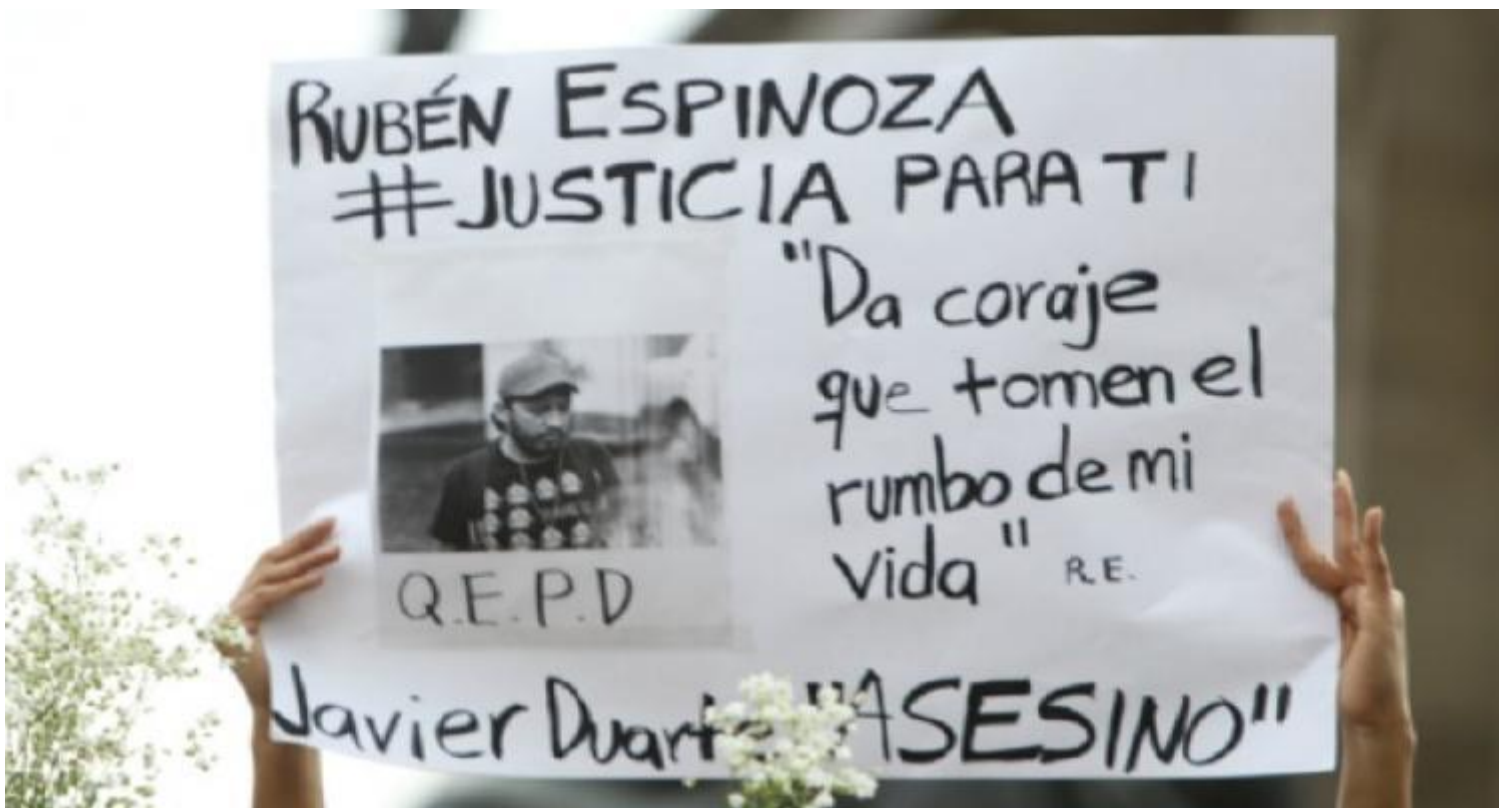 RUBÉN ESPINOZA
#JUSTICIA PARA TI
"Da coraje
que tomen el
rumbo de mi
vida" R.E.
Q.E.P.D
Javier Duarte "ASESINO"